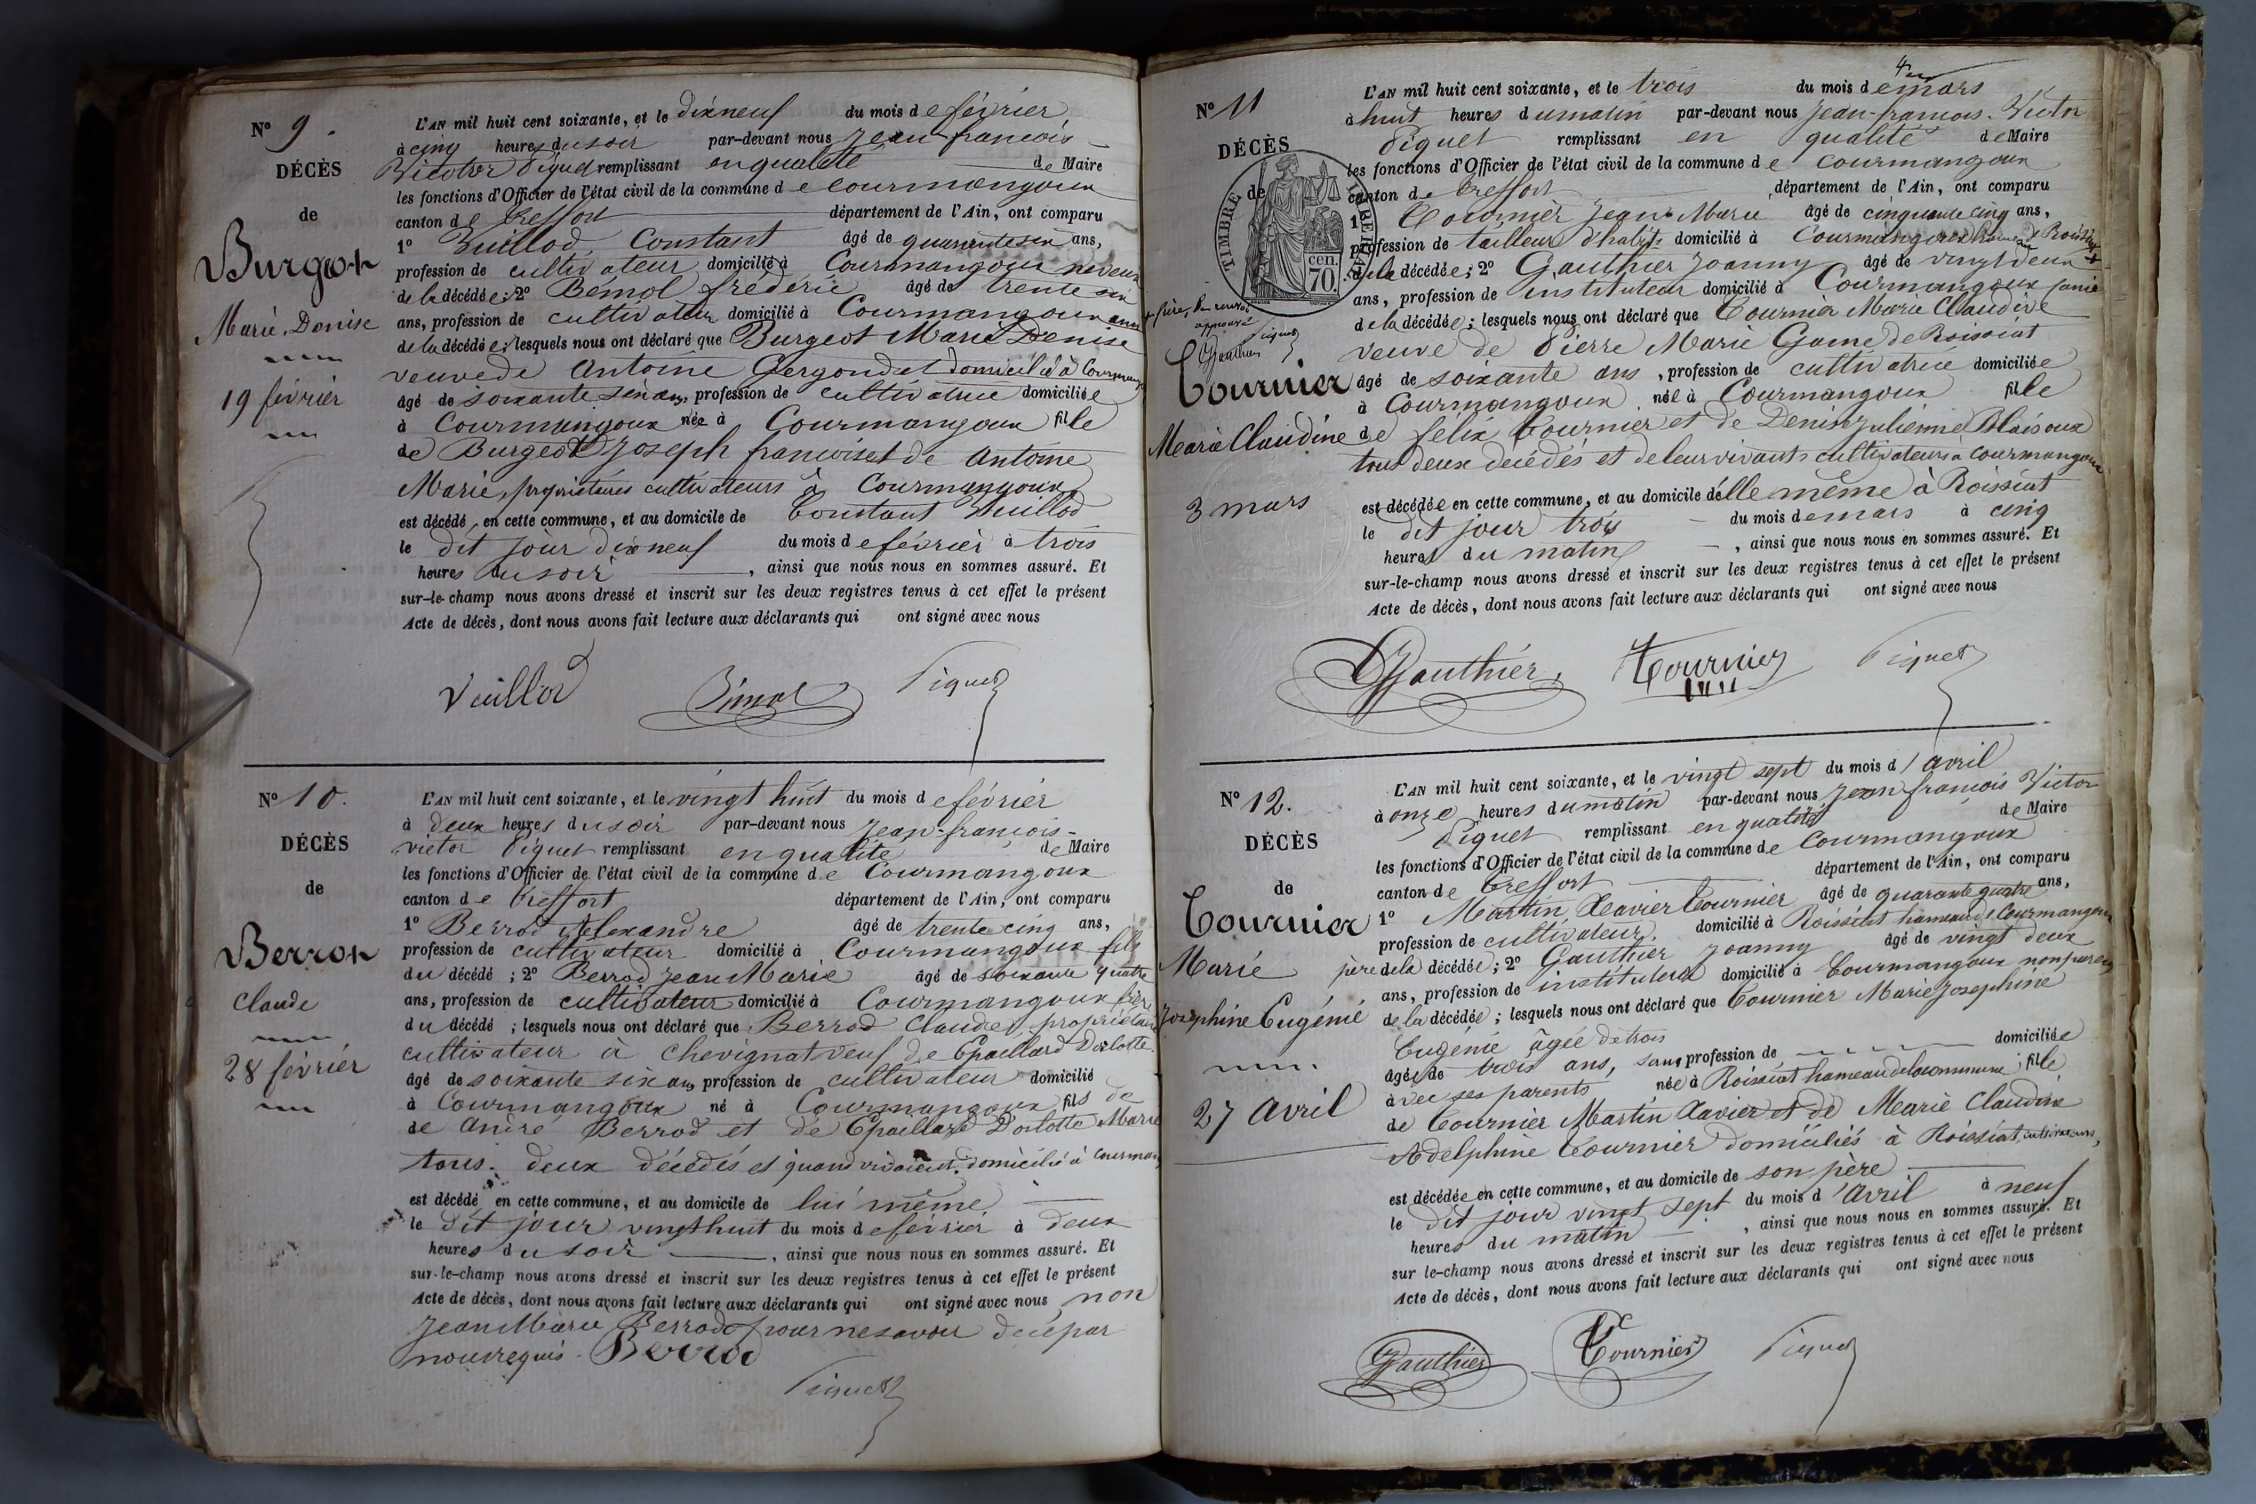 N° 9.
DÉCÈS
de
Burgeot
Marie Denise
19 février
L'AN mil huit cent soixante, et le dixneuf du mois de février
à cinq heures du soir par-devant nous Jean-francois
Victor Piquet remplissant en qualité de Maire
les fonctions d'Officier de l'état civil de la commune de Courmangoux
canton de Treffort département de l'Ain, ont comparu
1° Vuillod Constant âgé de quarante six ans,
profession de cultivateur domicilié à Courmangoux neveux
de la décédée; 2° Bémol frédéric âgé de trente six
ans, profession de cultivateur domicilié à Courmangoux ami
de la décédée; lesquels nous ont déclaré que Burgeot Marie Denise
veuve de Antoine Gergondet domicilié à Courmang
âgé de soixante six ans, profession de cultivatrice domiciliée
à Courmangoux née à Courmangoux fille
de Burgeot Joseph francoiset de Antoine
Marie, propriétaires cultivateurs à Courmangoux
est décédé en cette commune, et au domicile de Constant Vuillod
le dit jour dixneuf du mois de février à trois
heures du soir, ainsi que nous nous en sommes assuré. Et
sur-le-champ nous avons dressé et inscrit sur les deux registres tenus à cet effet le présent
Acte de décès, dont nous avons fait lecture aux déclarants qui ont signé avec nous
Vuillod Bémol Piquet
N° 10.
DÉCÈS
de
Berrod
Claude
28 février
L'AN mil huit cent soixante, et le vingt huit du mois de février
à deux heures du soir par-devant nous Jean-françois-
victor Piquet remplissant en qualité de Maire
les fonctions d'Officier de l'état civil de la commune de Courmangoux
canton de Treffort département de l'Ain, ont comparu
1° Berrod Alexandre âgé de trente cinq ans,
profession de cultivateur domicilié à Courmangoux fils
du décédé; 2° Berrod Jean Marie âgé de soixante quatre
ans, profession de cultivateur domicilié à Courmangoux frère
du décédé; lesquels nous ont déclaré que Berrod Claude, propriétaire
cultivateur à Chevignat veuf de Epaillard Dorlotte
âgé de soixante six ans, profession de cultivateur domicilié
à Courmangoux né à Courmangoux fils de
de André Berrod et de Epaillard Dorlotte Marie
tous deux décédés et quand vivaient domicilié à Courman
est décédé en cette commune, et au domicile de lui même
le dit jour vingthuit du mois de février à deux
heures du soir, ainsi que nous nous en sommes assuré. Et
sur-le-champ nous avons dressé et inscrit sur les deux registres tenus à cet effet le présent
Acte de décès, dont nous avons fait lecture aux déclarants qui ont signé avec nous non
Jean Marie Berrod pour ne savoir de ce par
nous requis. Berrod
Piquet
4
N° 11
DÉCÈS
de
TIMBRE IMPÉRIAL
cen. 70.
frère, un renvoi
approuvé
Piquet
Gauthier
Tournier
Marie Claudine
3 mars
L'AN mil huit cent soixante, et le trois du mois de mars
à huit heures du matin par-devant nous Jean-francois-Victor
Piquet remplissant en qualité de Maire
les fonctions d'Officier de l'état civil de la commune de Courmangoux
canton de Treffort département de l'Ain, ont comparu
1° Tournier Jean-Marie âgé de cinquante cinq ans,
profession de tailleur d'habits domicilié à Courmangoux hameau de Roissiat
de la décédée; 2° Gauthier Joanny âgé de vingt deux
ans, profession de instituteur domicilié à Courmangoux
de la décédée; lesquels nous ont déclaré que Tournier Marie Claudine
veuve de Pierre Marie Game de Roissiat
âgé de soixante ans, profession de cultivatrice domiciliée
à Courmangoux née à Courmangoux fille
de félix Tournier et de Denise Julienne Blaisoux
tous deux décédés et de leur vivants cultivateurs à Courmangoux
est décédée en cette commune, et au domicile d'elle même à Roissiat
le dit jour trois du mois de mars à cinq
heures du matin, ainsi que nous nous en sommes assuré. Et
sur-le-champ nous avons dressé et inscrit sur les deux registres tenus à cet effet le présent
Acte de décès, dont nous avons fait lecture aux déclarants qui ont signé avec nous
Gauthier Tournier Piquet
N° 12.
DÉCÈS
de
Tournier
Marie
Josephine Eugénie
27 avril
L'AN mil huit cent soixante, et le vingt sept du mois d'avril
à onze heures du matin par-devant nous Jean françois Victor
Piquet remplissant en qualité de Maire
les fonctions d'Officier de l'état civil de la commune de Courmangoux
canton de Treffort département de l'Ain, ont comparu
1° Martin Xavier Tournier âgé de quarante quatre ans,
profession de cultivateur domicilié à Roissiat hameau de Courmangoux
père de la décédée; 2° Gauthier Joanny âgé de vingt deux
ans, profession de instituteur domicilié à Courmangoux non parent
de la décédée; lesquels nous ont déclaré que Tournier Marie Josephine
Eugénie âgée de trois
âgée de trois ans, sans profession de domiciliée
avec ses parents née à Roissiat hameau de la commune fille
de Tournier Martin Xavier et de Marie Claudine
Adelphine Tournier domiciliés à Roissiat, cultivateurs,
est décédée en cette commune, et au domicile de son père
le dit jour vingt sept du mois d'avril à neuf
heures du matin, ainsi que nous nous en sommes assuré. Et
sur le-champ nous avons dressé et inscrit sur les deux registres tenus à cet effet le présent
Acte de décès, dont nous avons fait lecture aux déclarants qui ont signé avec nous
Gauthier Tournier Piquet